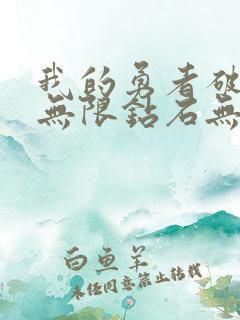 我的勇者破
無限鈷石無
白魚羊
未經同意禁止轉載